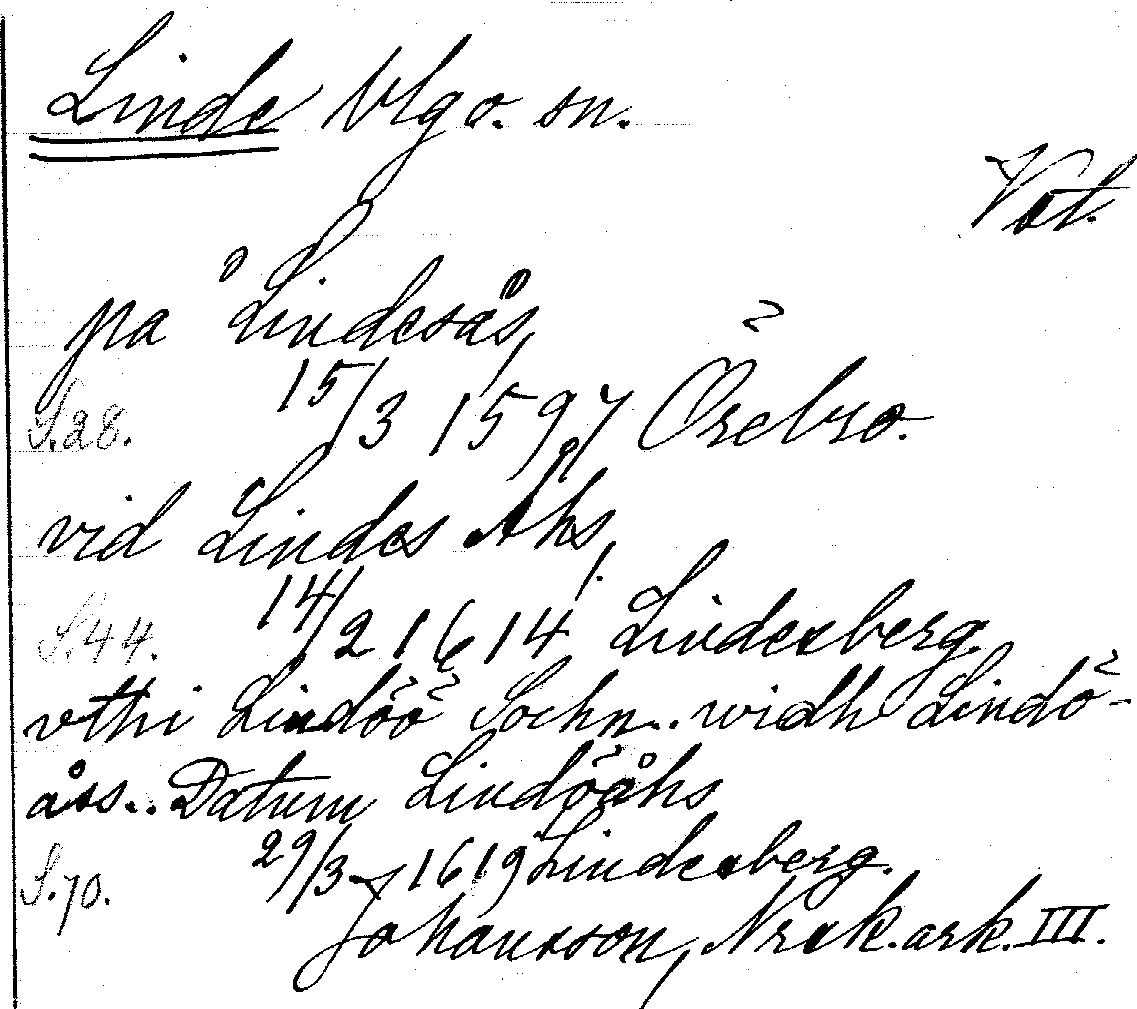 Linde Vlgo. sn.
Vst.
på Lindesås,
S.28. 15/3 1597 Örebro.
vid Lindes Åhs,
S.44. 14/2 1614 Lindesberg.
vthi Lindöö Sochn.. widh Lindö-
åss.. Datum Lindööåhs
S.70. 29/3 1619 Lindesberg.
Johansson, Nrk. ark. III.